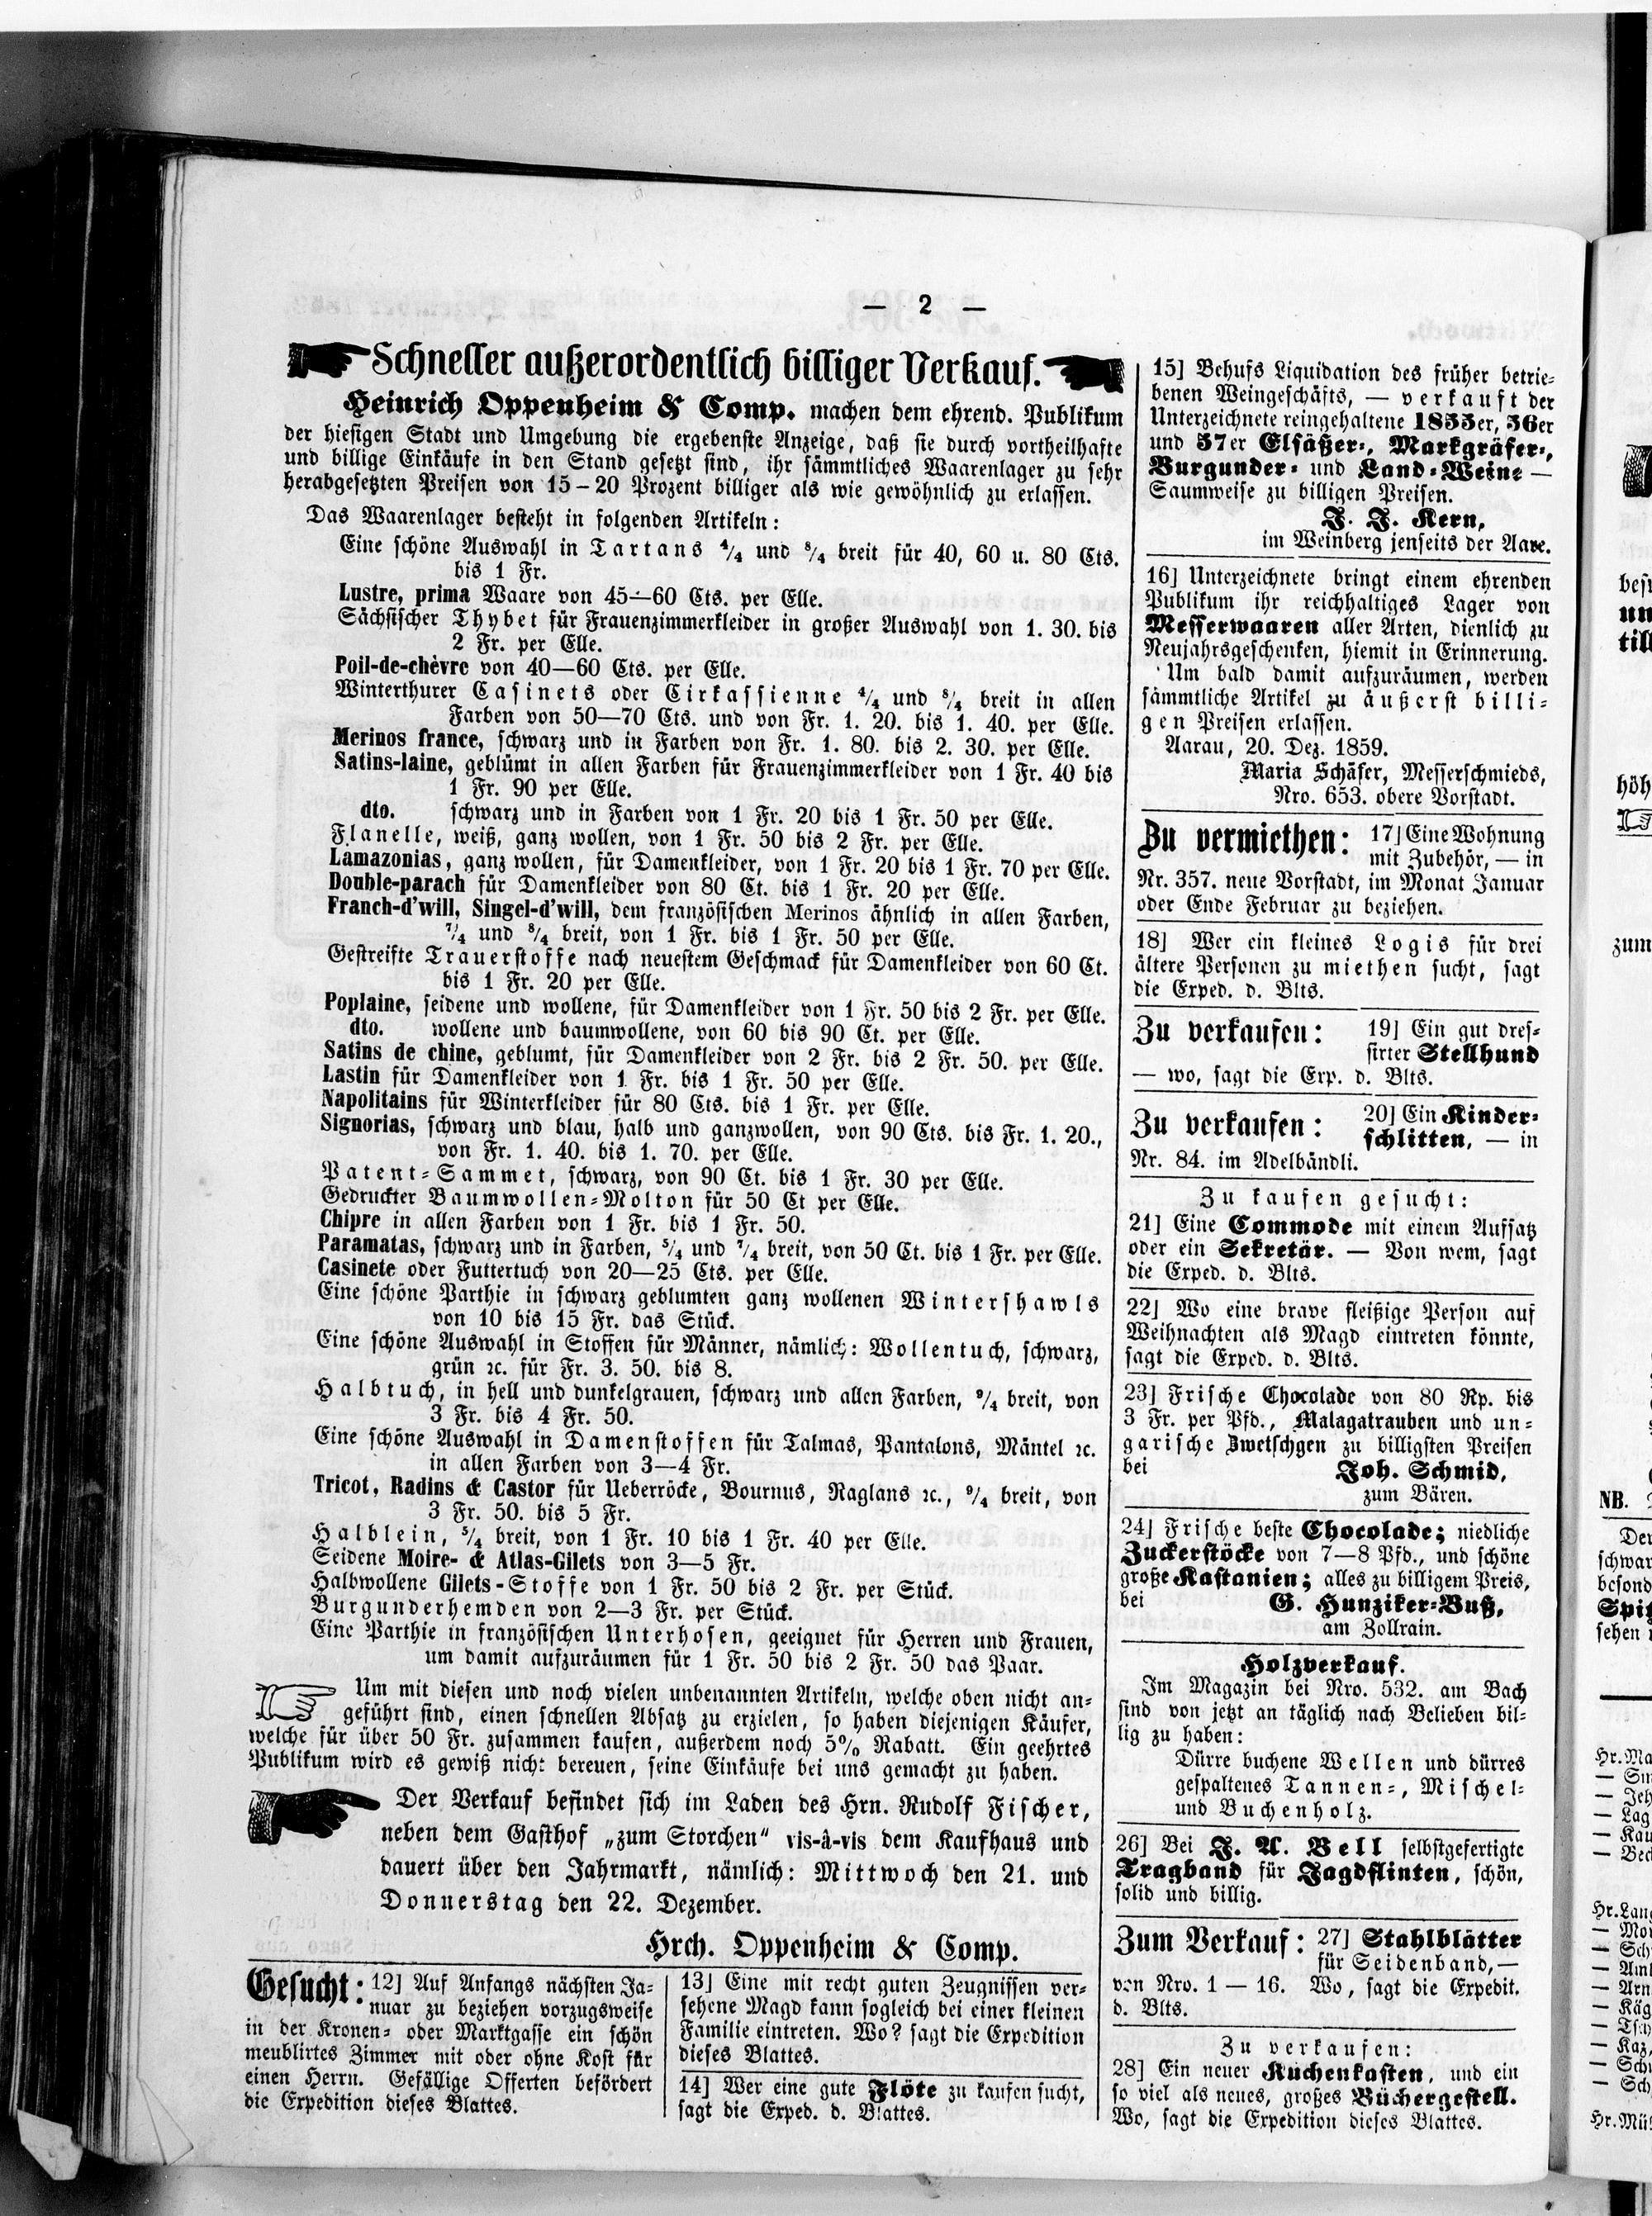 — 2 —
Schneller außerordentlich billiger Verkauf.
Heinrich Oppenheim & Comp. machen dem ehrend. Publikum
der hiesigen Stadt und Umgebung die ergebenste Anzeige, daß sie durch vortheilhafte
und billige Einkäufe in den Stand gesetzt sind, ihr sämmtliches Waarenlager zu sehr
herabgesetzten Preisen von 15–20 Prozent billiger als wie gewöhnlich zu erlassen.
Das Waarenlager besteht in folgenden Artikeln:
Eine schöne Auswahl in Tartans 4/4 und 8/4 breit für 40, 60 u. 80 Cts.
bis 1 Fr.
Lustre, prima Waare von 45—60 Cts. per Elle.
Sächsischer Thybet für Frauenzimmerkleider in großer Auswahl von 1. 30. bis
2 Fr. per Elle.
Poil-de-chèvre von 40—60 Cts. per Elle.
Winterthurer Casinets oder Cirkassienne 4/4 und 8/4 breit in allen
Farben von 50—70 Cts. und von Fr. 1. 20. bis 1. 40. per Elle.
Merinos france, schwarz und in Farben von Fr. 1. 80. bis 2. 30. per Elle.
Satins-laine, geblümt in allen Farben für Frauenzimmerkleider von 1 Fr. 40 bis
1 Fr. 90 per Elle.
dto. schwarz und in Farben von 1 Fr. 20 bis 1 Fr. 50 per Elle.
Flanelle, weiß, ganz wollen, von 1 Fr. 50 bis 2 Fr. per Elle.
Lamazonias, ganz wollen, für Damenkleider, von 1 Fr. 20 bis 1 Fr. 70 per Elle.
Double-parach für Damenkleider von 80 Ct. bis 1 Fr. 20 per Elle.
Franch-d'will, Singel-d'will, dem französischen Merinos ähnlich in allen Farben,
7/4 und 8/4 breit, von 1 Fr. bis 1 Fr. 50 per Elle.
Gestreifte Trauerstoffe nach neuestem Geschmack für Damenkleider von 60 Ct.
bis 1 Fr. 20 per Elle.
Poplaine, seidene und wollene, für Damenkleider von 1 Fr. 50 bis 2 Fr. per Elle.
dto. wollene und baumwollene, von 60 bis 90 Ct. per Elle.
Satins de chine, geblumt, für Damenkleider von 2 Fr. bis 2 Fr. 50. per Elle.
Lastin für Damenkleider von 1 Fr. bis 1 Fr. 50 per Elle.
Napolitains für Winterkleider für 80 Cts. bis 1 Fr. per Elle.
Signorias, schwarz und blau, halb und ganzwollen, von 90 Cts. bis Fr. 1. 20.,
von Fr. 1. 40. bis 1. 70. per Elle.
Patent-Sammet, schwarz, von 90 Ct. bis 1 Fr. 30 per Elle.
Gedruckter Baumwollen-Molton für 50 Ct per Elle.
Chipre in allen Farben von 1 Fr. bis 1 Fr. 50.
Paramatas, schwarz und in Farben, 5/4 und 7/4 breit, von 50 Ct. bis 1 Fr. per Elle.
Casinete oder Futtertuch von 20—25 Cts. per Elle.
Eine schöne Parthie in schwarz geblumten ganz wollenen Wintershawls
von 10 bis 15 Fr. das Stück.
Eine schöne Auswahl in Stoffen für Männer, nämlich: Wollentuch, schwarz,
grün ꝛc. für Fr. 3. 50. bis 8.
Halbtuch, in hell und dunkelgrauen, schwarz und allen Farben, 9/4 breit, von
3 Fr. bis 4 Fr. 50.
Eine schöne Auswahl in Damenstoffen für Talmas, Pantalons, Mäntel ꝛc.
in allen Farben von 3—4 Fr.
Tricot, Radins & Castor für Ueberröcke, Bournus, Raglans ꝛc., 9/4 breit, von
3 Fr. 50. bis 5 Fr.
Halblein, 5/4 breit, von 1 Fr. 10 bis 1 Fr. 40 per Elle.
Seidene Moire- & Atlas-Gilets von 3—5 Fr.
Halbwollene Gilets-Stoffe von 1 Fr. 50 bis 2 Fr. per Stück.
Burgunderhemden von 2—3 Fr. per Stück.
Eine Parthie in französischen Unterhosen, geeignet für Herren und Frauen,
um damit aufzuräumen für 1 Fr. 50 bis 2 Fr. 50 das Paar.
Um mit diesen und noch vielen unbenannten Artikeln, welche oben nicht an-
geführt sind, einen schnellen Absatz zu erzielen, so haben diejenigen Käufer,
welche für über 50 Fr. zusammen kaufen, außerdem noch 5% Rabatt. Ein geehrtes
Publikum wird es gewiß nicht bereuen, seine Einkäufe bei uns gemacht zu haben.
Der Verkauf befindet sich im Laden des Hrn. Rudolf Fischer,
neben dem Gasthof „zum Storchen“ vis-à-vis dem Kaufhaus und
dauert über den Jahrmarkt, nämlich: Mittwoch den 21. und
Donnerstag den 22. Dezember.
Hrch. Oppenheim & Comp.
Gesucht: 12] Auf Anfangs nächsten Ja-
nuar zu beziehen vorzugsweise
in der Kronen- oder Marktgasse ein schön
meublirtes Zimmer mit oder ohne Kost für
einen Herrn. Gefällige Offerten befördert
die Expedition dieses Blattes.
13] Eine mit recht guten Zeugnissen ver-
sehene Magd kann sogleich bei einer kleinen
Familie eintreten. Wo? sagt die Expedition
dieses Blattes.
14] Wer eine gute Flöte zu kaufen sucht,
sagt die Exped. d. Blattes.
15] Behufs Liquidation des früher betrie-
benen Weingeschäfts, — verkauft der
Unterzeichnete reingehaltene 1855er, 56er
und 57er Elsäßer-, Markgräfer-,
Burgunder- und Land-Weine —
Saumweise zu billigen Preisen.
J. J. Kern,
im Weinberg jenseits der Aare.
16] Unterzeichnete bringt einem ehrenden
Publikum ihr reichhaltiges Lager von
Messerwaaren aller Arten, dienlich zu
Neujahrsgeschenken, hiemit in Erinnerung.
Um bald damit aufzuräumen, werden
sämmtliche Artikel zu äußerst billi-
gen Preisen erlassen.
Aarau, 20. Dez. 1859.
Maria Schäfer, Messerschmieds,
Nro. 653. obere Vorstadt.
Zu vermiethen: 17] Eine Wohnung
mit Zubehör, — in
Nr. 357. neue Vorstadt, im Monat Januar
oder Ende Februar zu beziehen.
18] Wer ein kleines Logis für drei
ältere Personen zu miethen sucht, sagt
die Exped. d. Blts.
Zu verkaufen: 19] Ein gut dres-
sirter Stellhund
— wo, sagt die Exp. d. Blts.
Zu verkaufen: 20] Ein Kinder-
schlitten, — in
Nr. 84. im Adelbändli.
Zu kaufen gesucht:
21] Eine Commode mit einem Aufsatz
oder ein Sekretär. — Von wem, sagt
die Exped. d. Blts.
22] Wo eine brave fleißige Person auf
Weihnachten als Magd eintreten könnte,
sagt die Exped. d. Blts.
23] Frische Chocolade von 80 Rp. bis
3 Fr. per Pfd., Malagatrauben und un-
garische Zwetschgen zu billigsten Preisen
bei Joh. Schmid,
zum Bären.
24] Frische beste Chocolade; niedliche
Zuckerstöcke von 7—8 Pfd., und schöne
große Kastanien; alles zu billigem Preis,
bei G. Hunziker-Buß,
am Zollrain.
Holzverkauf.
Im Magazin bei Nro. 532. am Bach
sind von jetzt an täglich nach Belieben bil-
lig zu haben:
Dürre buchene Wellen und dürres
gespaltenes Tannen-, Mischel-
und Buchenholz.
26] Bei J. A. Bell selbstgefertigte
Tragband für Jagdflinten, schön,
solid und billig.
Zum Verkauf: 27] Stahlblätter
für Seidenband, —
von Nro. 1 — 16. Wo, sagt die Expedit.
d. Blts.
Zu verkaufen:
28] Ein neuer Küchenkasten, und ein
so viel als neues, großes Büchergestell.
Wo, sagt die Expedition dieses Blattes.